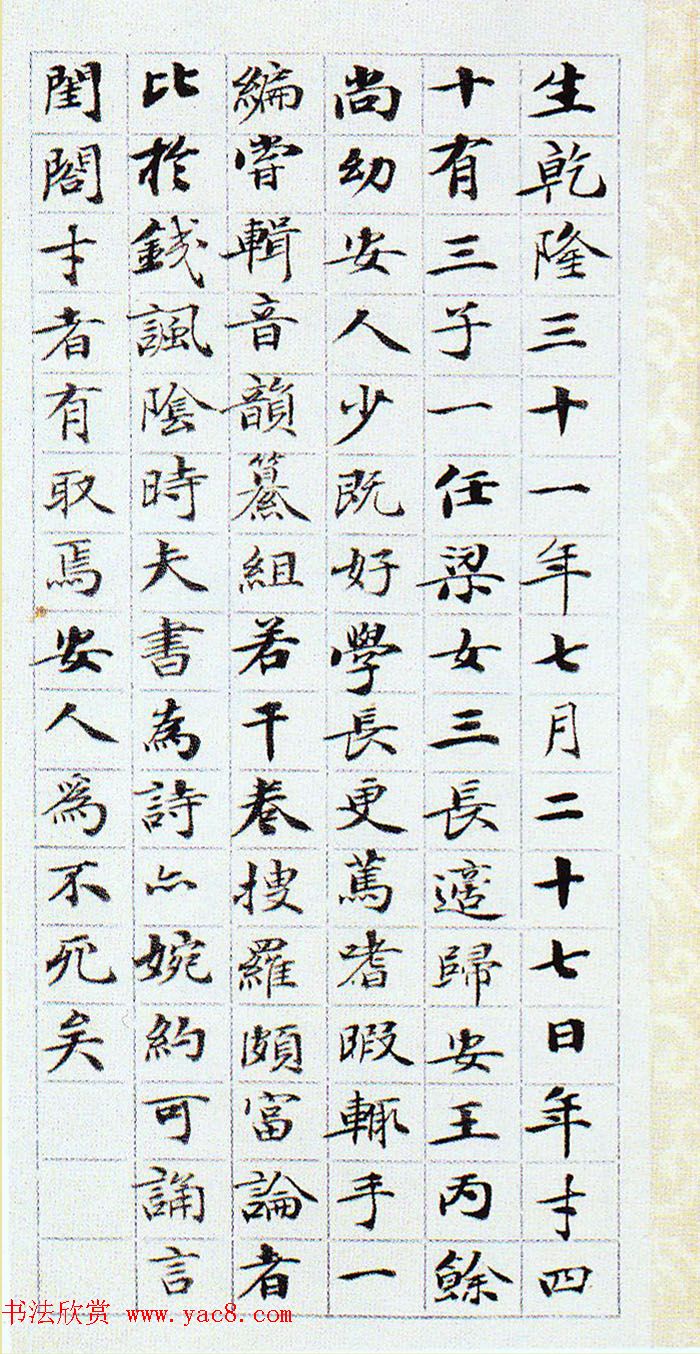 生乾隆三十一年七月二十七日年才四
十有三子一任梁女三長適歸安王丙餘
尚幼安人少既好學長更篤嗜暇輒手一
編嘗輯音韻纂組若干卷搜羅頗富論者
比於錢諷陰時夫書為詩亦婉約可誦言
閨閣才者有取焉安人爲不死矣
书法欣赏 www.yac8.com